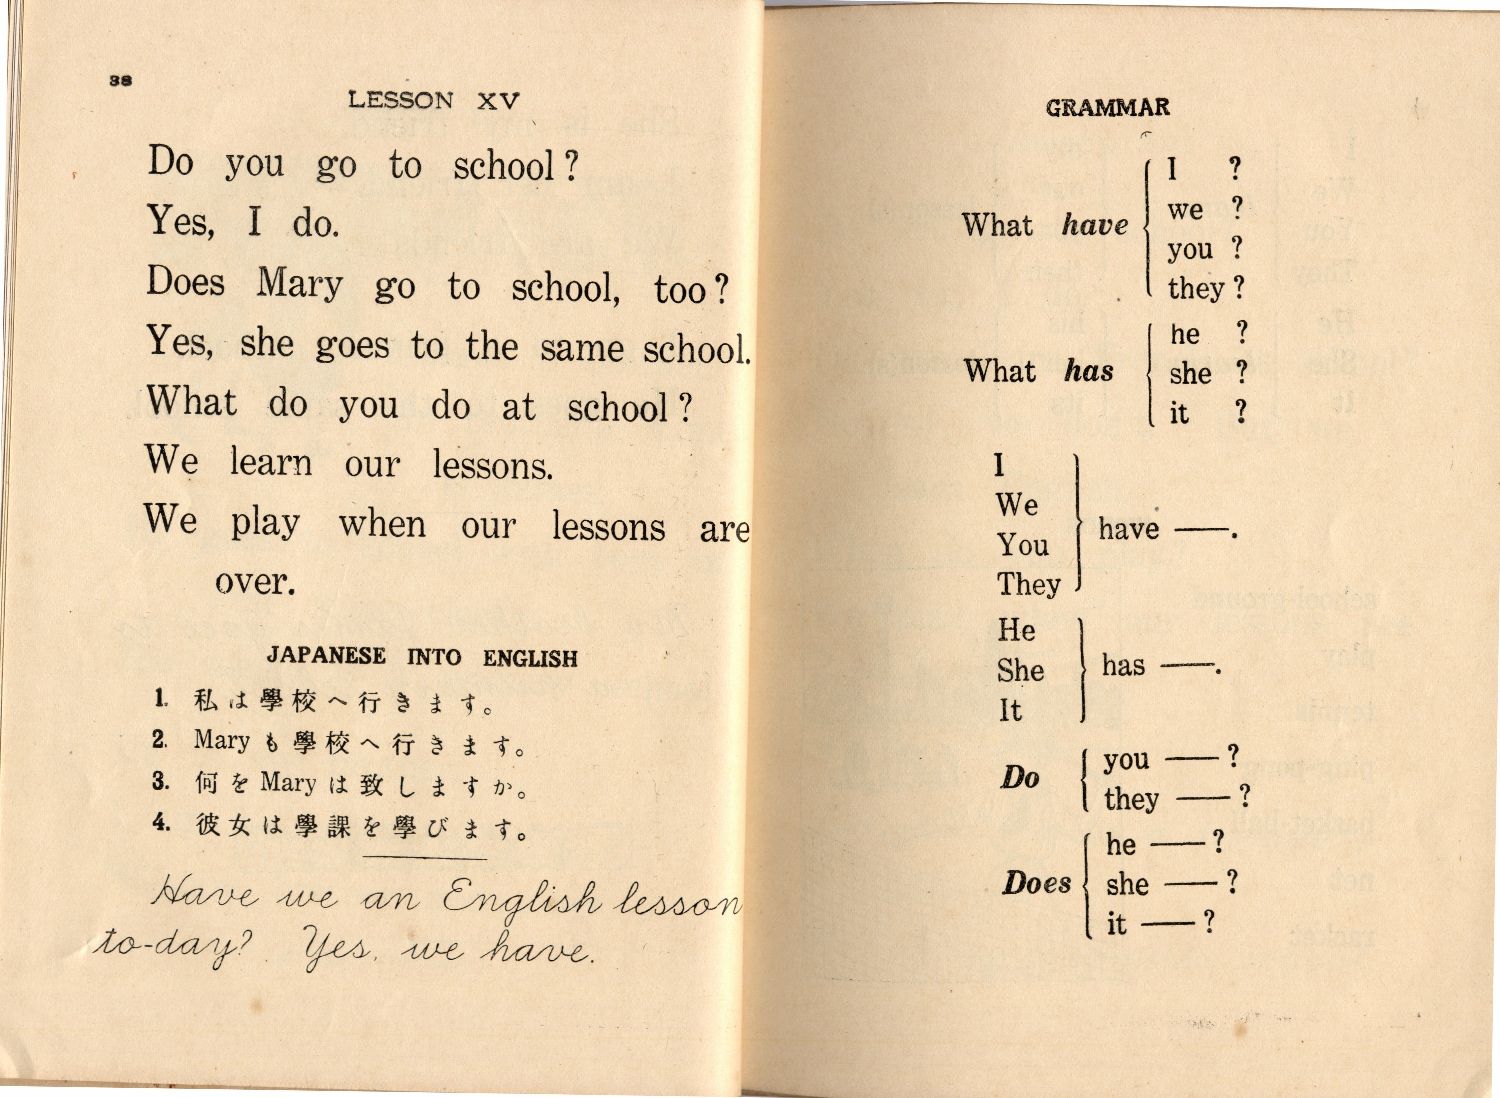 38
LESSON XV
Do you go to school?
Yes, I do.
Does Mary go to school, too?
Yes, she goes to the same school.
What do you do at school?
We learn our lessons.
We play when our lessons are
over.
JAPANESE INTO ENGLISH
1. 私は學校へ行きます。
2. Mary も學校へ行きます。
3. 何を Mary は致しますか。
4. 彼女は學課を學びます。
Have we an English lesson
to-day? Yes, we have.
GRAMMAR
I ?
we ?
What have
you ?
they ?
he ?
What has she ?
it ?
I
We
have —.
You
They
He
She has —.
It
Do
you — ?
they — ?
he — ?
Does she — ?
it — ?